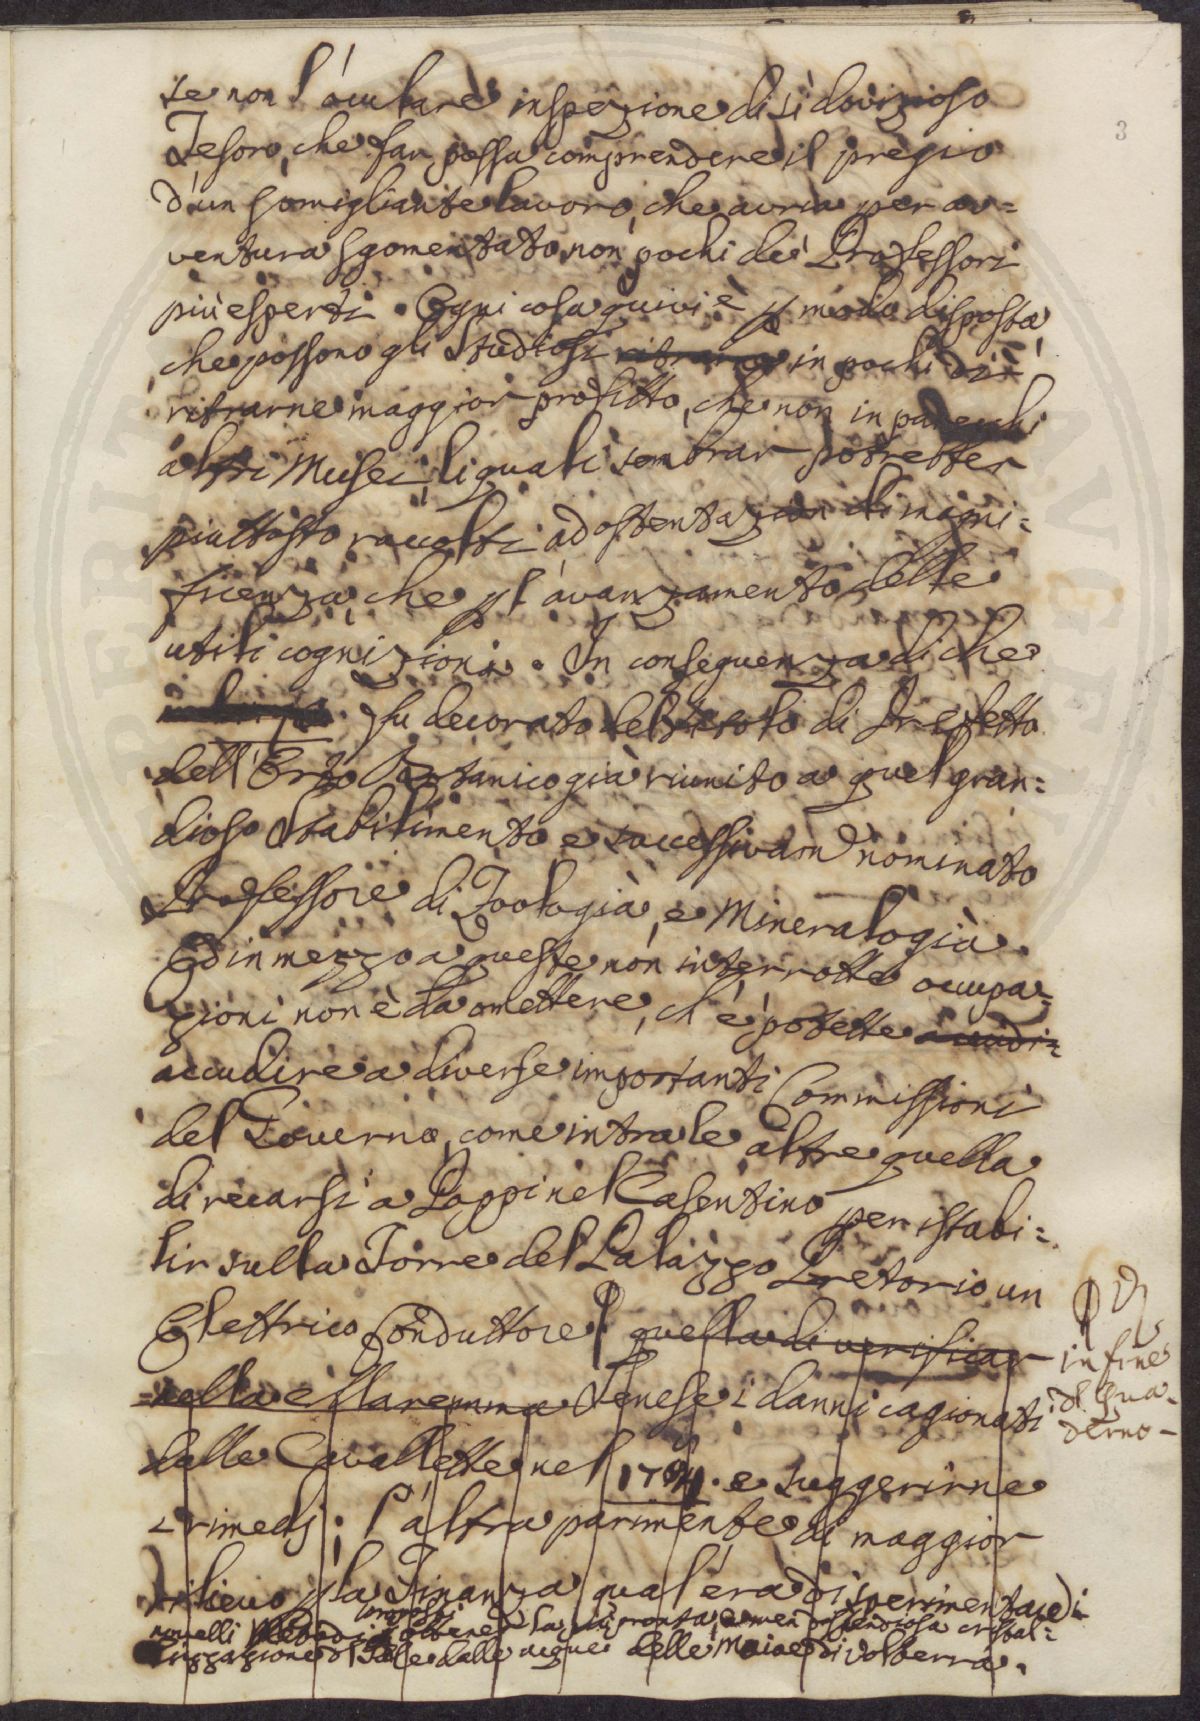 3
se non l'oculare inspezione di sì dovizioso
Tesoro, che far possa comprendere il pregio
d'un somigliante lavoro, che avria per av=
ventura sgomentato non pochi de' Professori
più esperti. Ogni cosa quivi è p modo disposta,
che possono gli Studiosi ritrarne in pochi dì
ritrarne maggior profitto, che non in parecchi
altri Musei, li quali sembrar potrebber
piuttosto raccolti ad ostentazion di magni=
ficenza, che p l'avanzamento delle
utili cognizioni. In conseguenza di che
fu decorato del titolo di Prefetto
dell'Orto Bottanico già riunito a quel gran=
dioso Stabilimento e successivam nominato
Professore di Zoologia, e Mineralogia.
Ed in mezzo a queste non interrotte occupa=
zioni non è da omettere, ch'e' potette accudi=
accudire a diverse importanti Commissioni
del Governo, come intra le altre quella
di recarsi a Poppi nel Casentino per istabi=
lir sulla Torre del Palazzo Pretorio un
Elettrico Conduttore quella di verificar
nella Maremma Senese i danni cagionati
dalle Cavallette nel 1784. e suggerirne
i rimedj; l'altra parimente di maggior
rilievo p la Finanza qual'era di sperimentare di
novelli metodi p ottener la più pronta, e men dispendiosa cristal=
lizzazione del Sale dalle acque delle Moie di Volterra.
in fine
del qua=
derno-